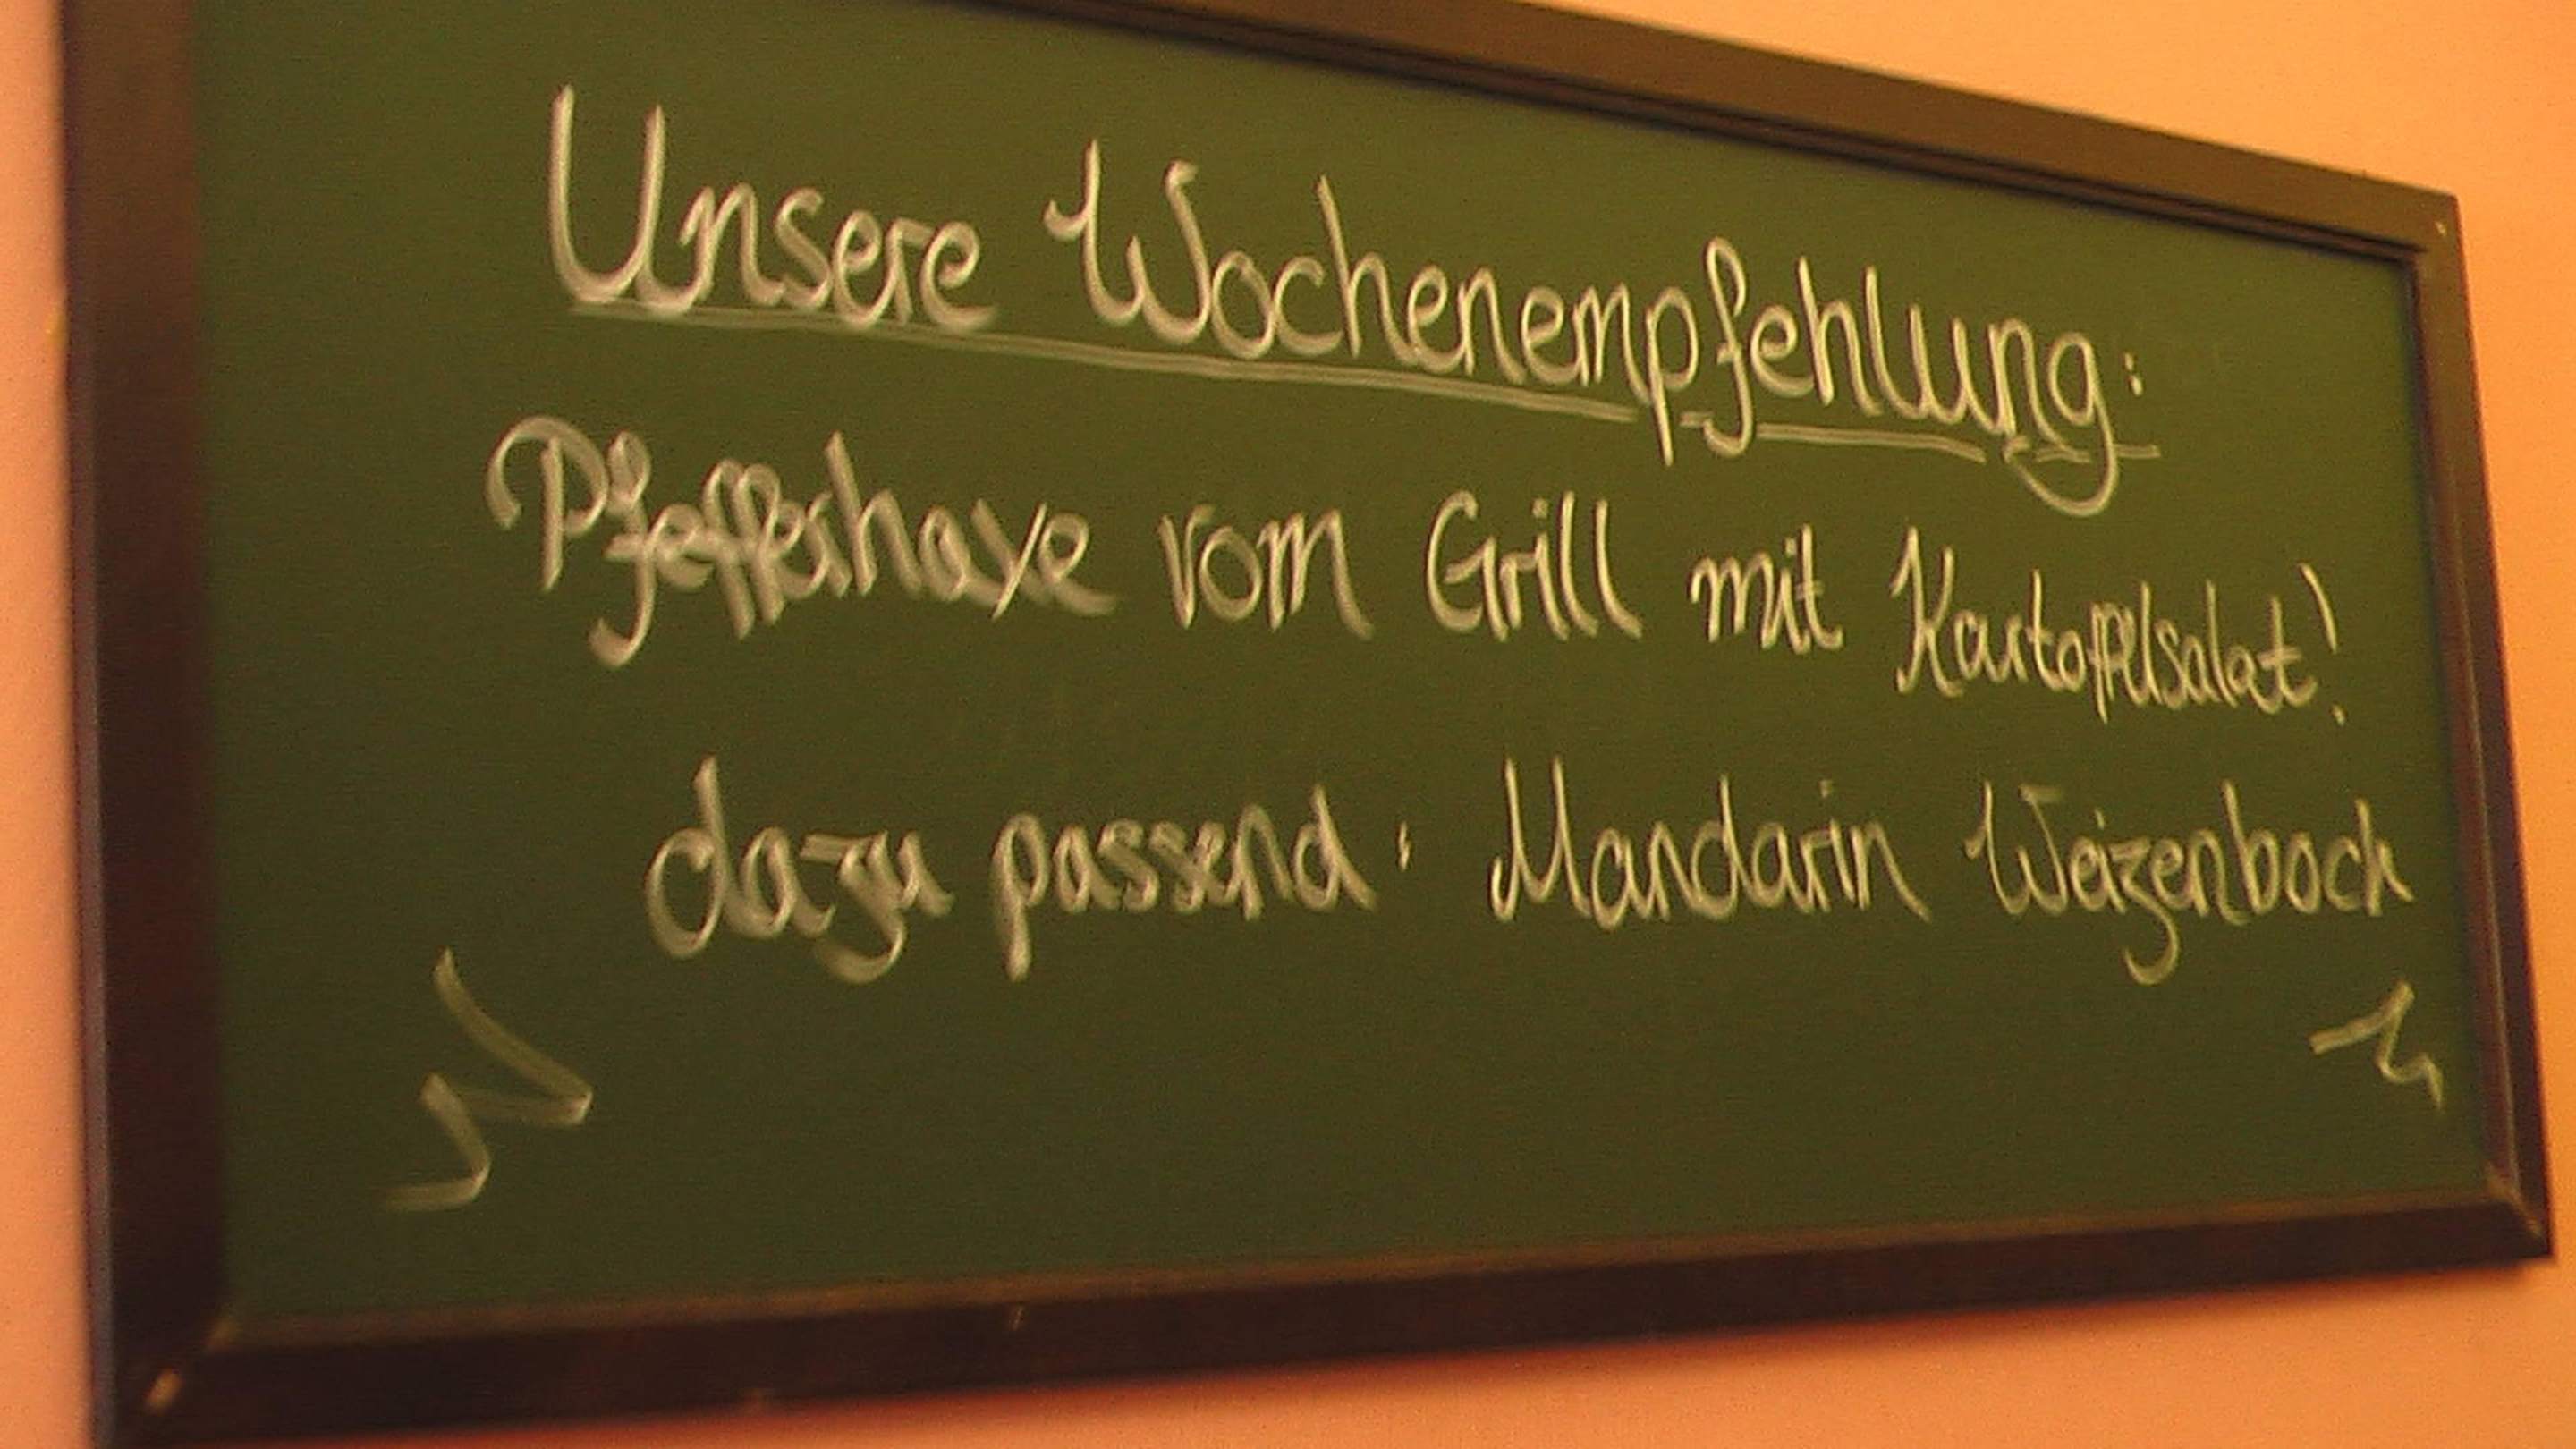 Unsere Wochenempfehlung:
Pfefferhaxe vom Grill mit Kartoffelsalat!
dazu passend: Mandarin Weizenbock